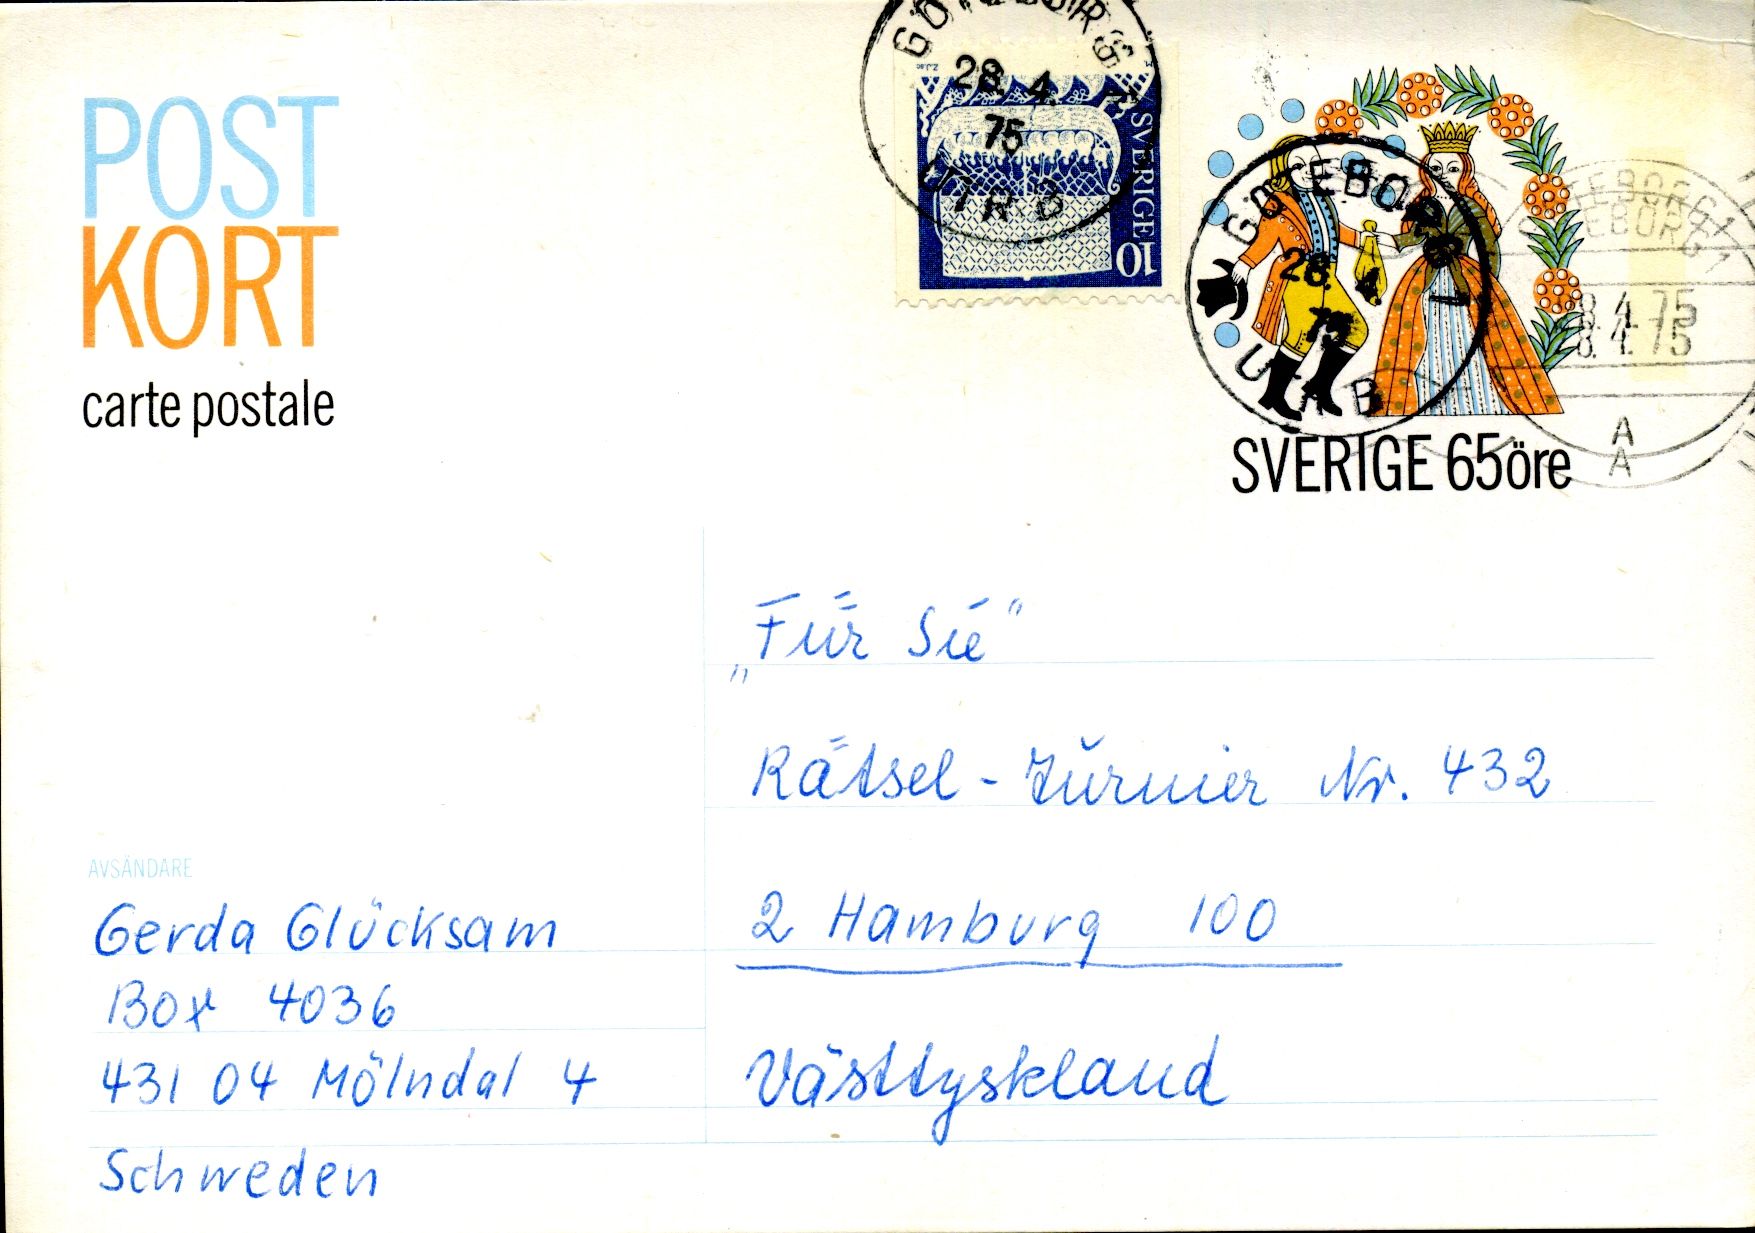 POST
KORT
carte postale
GÖTEBORG
28. 4.
75
UTR B
SVERIGE
10
GÖTEBORG 1
28. 4
75
UTR B
GÖTEBORG 1
28.4.75
A
A
SVERIGE 65öre
„Für Sie"
Rätsel - Turnier Nr. 432
2 Hamburg 100
Västtyskland
AVSÄNDARE
Gerda Glücksam
Box 4036
431 04 Mölndal 4
Schweden